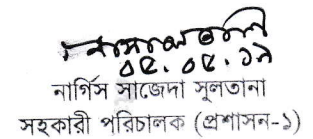 ০৫. ০৫. ১৯
নার্গিস সাজেদা সুলতানা
সহকারী পরিচালক (প্রশাসন-১)